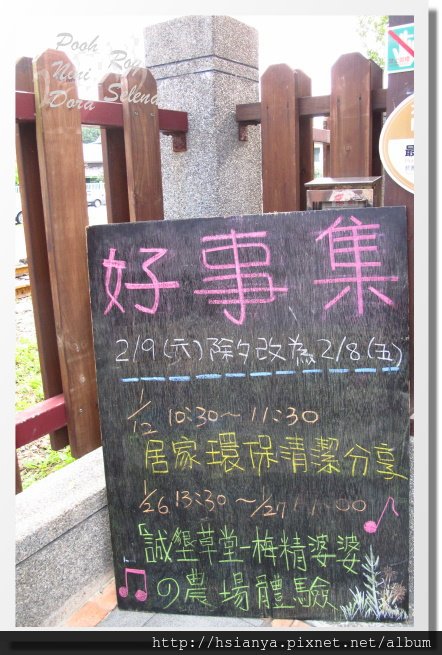 Pooh Roy
Nini
Dora Selena
最
好事集
2/9(六)除夕改為2/8(五)
1/12 10:30~11:30
居家環保清潔分享
1/26 13:30~1/27 11:00
誠墾草堂-梅精婆婆
の農場體驗
http://hsianya.pixnet.net/album